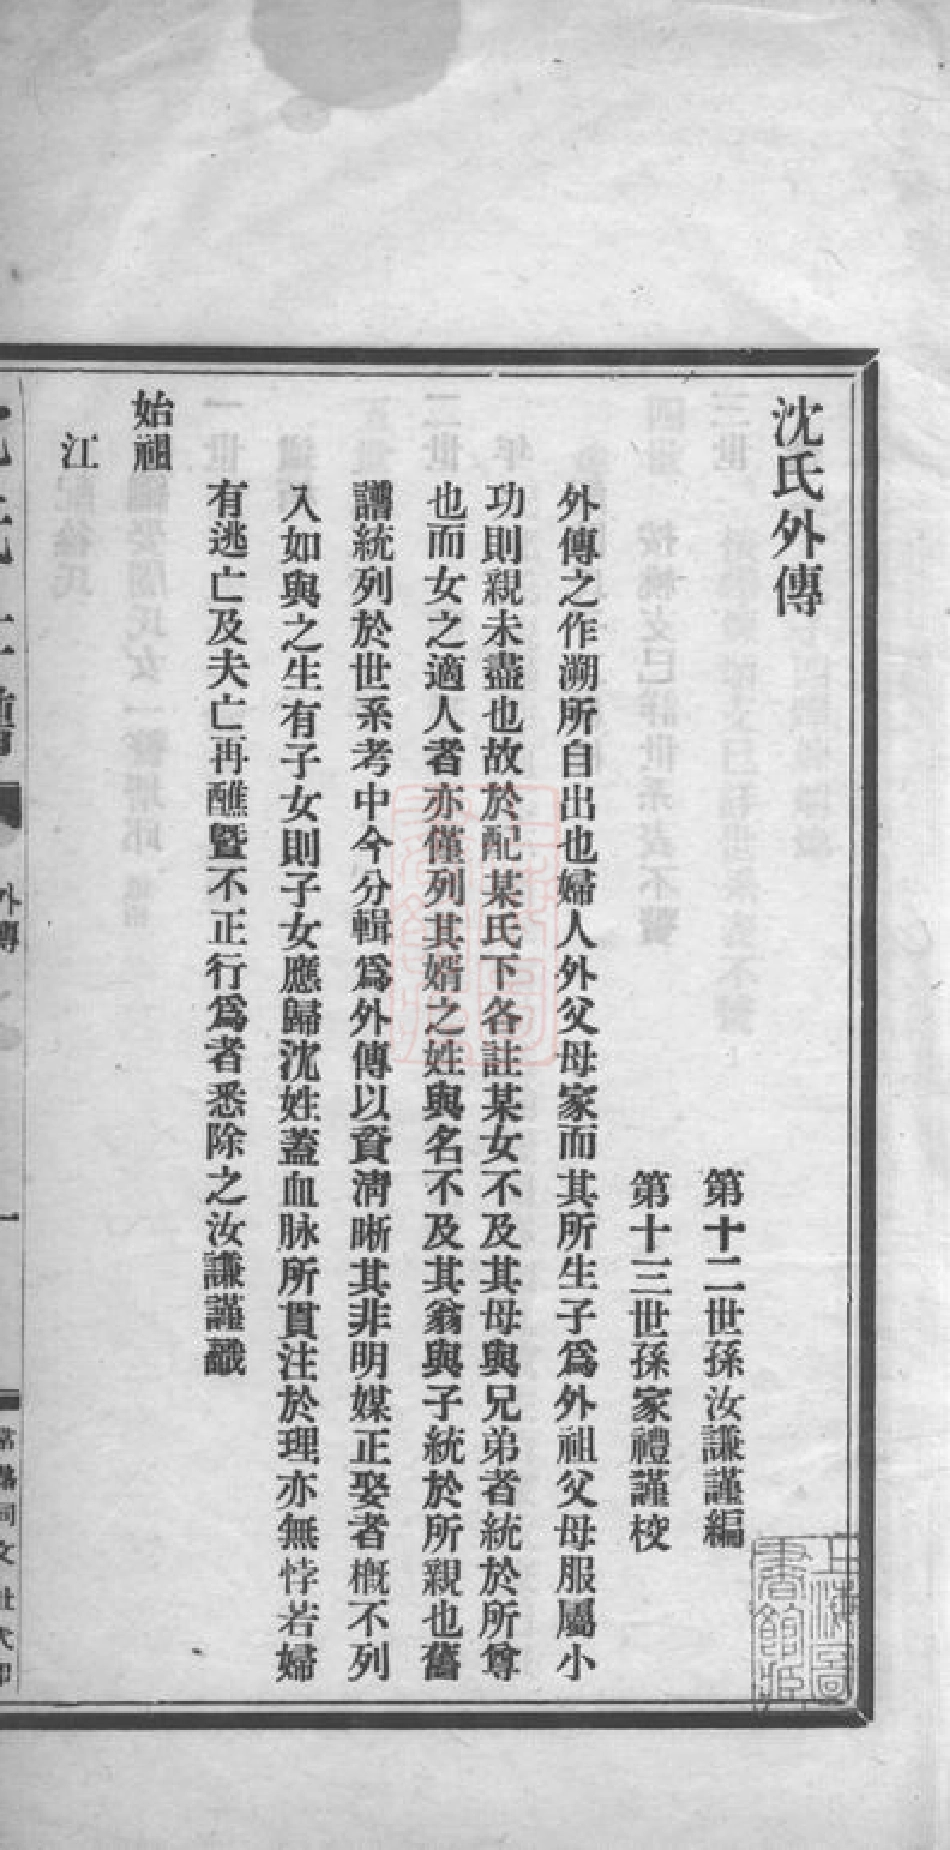 沈氏外傳
第十二世孫汝謙謹編
第十三世孫家禮謹校
外傳之作溯所自出也婦人外父母家而其所生子爲外祖父母服屬小
功則親未盡也故於配某氏下各註某女不及其母與兄弟者統於所尊
也而女之適人者亦僅列其婿之姓與名不及其翁與子統於所親也舊
譜統列於世系考中今分輯爲外傳以資淸晰其非明媒正娶者槪不列
入如與之生有子女則子女應歸沈姓蓋血脉所貫注於理亦無悖若婦
有逃亡及夫亡再醮曁不正行爲者悉除之汝謙謹識
始祖
江
外傳
一
上海圖書館藏